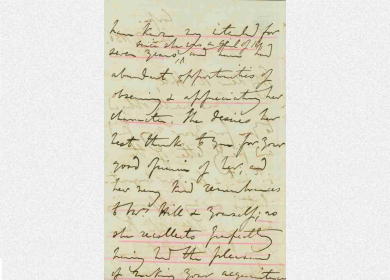 have known my intended for
since she was a girl of 15
seven years, and have had
abundant opportunities of
observing & appreciating her
character. She desires her
best thanks to you for your
good opinion of her, and
her very kind remembrances
to Mrs Hill & yourself; as
she recollects perfectly
having had the pleasure
of making your acquaintance